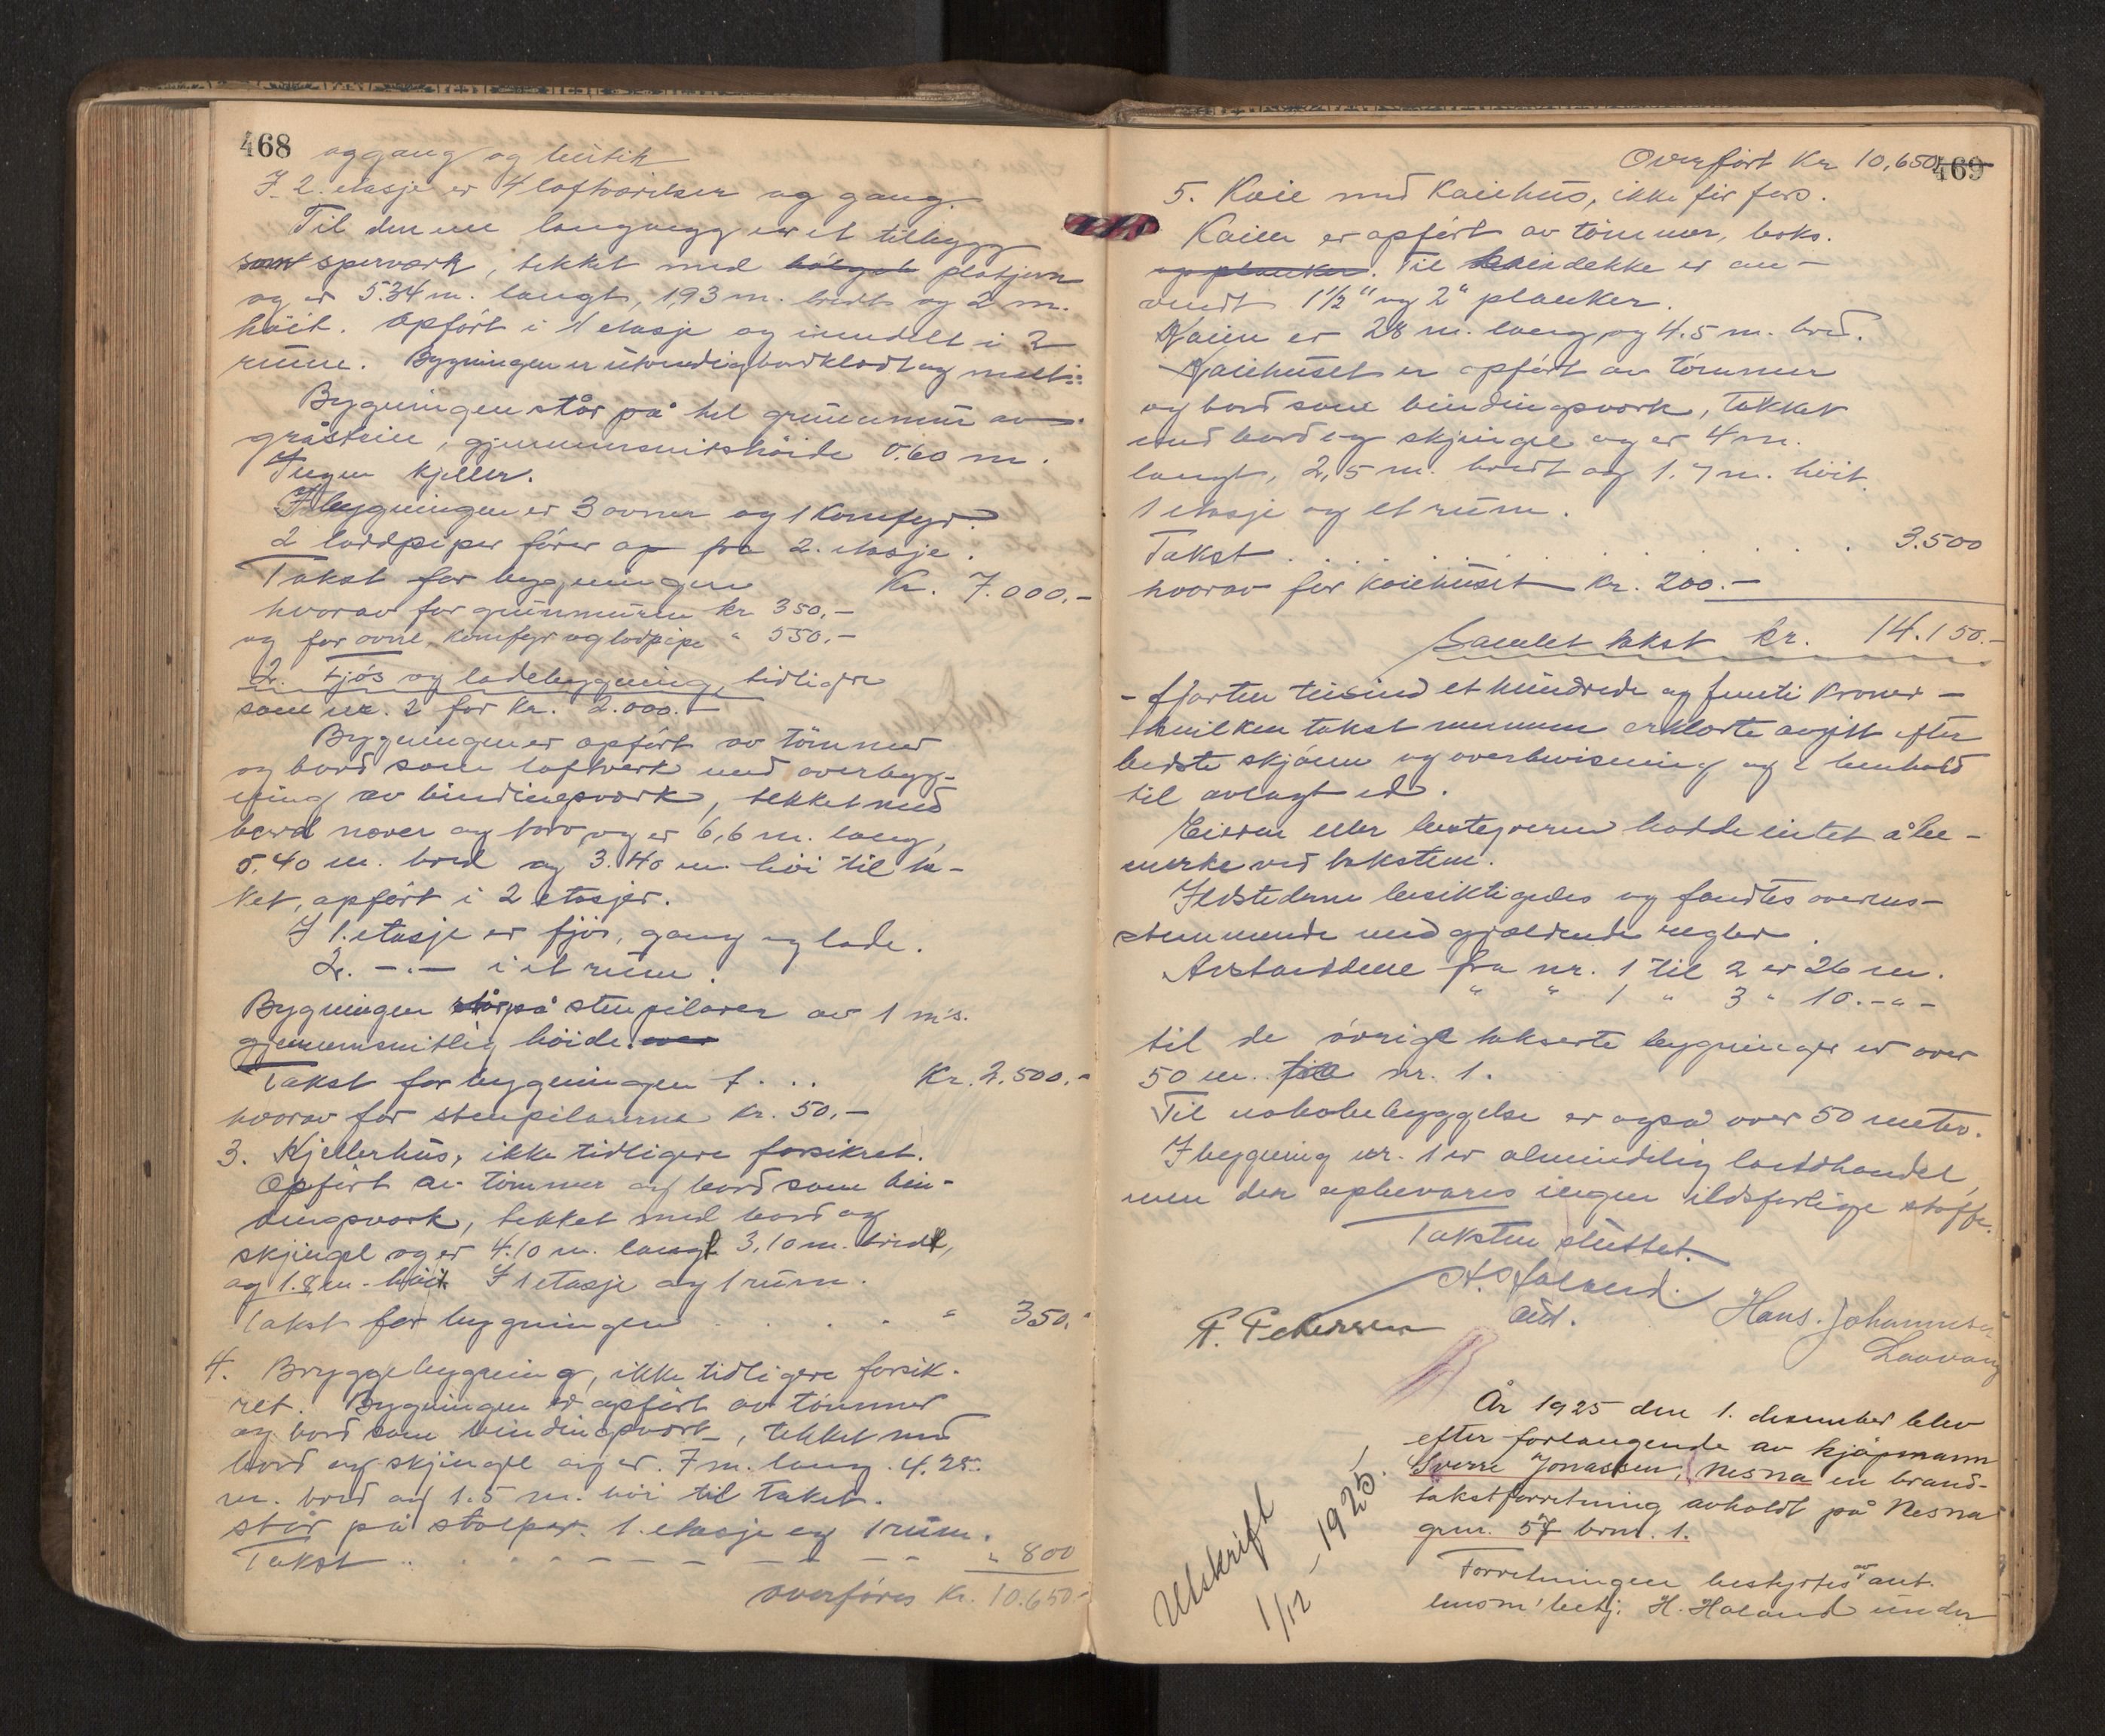 468
opgang og butik
I 2. etasje er 4 loftværelser og gang.
Til denne langvegg er et tilbygg
som sperverk, tekket med bølget platjern
og er 5.34 m. langt, 1,93 m. bredt og 2 m.
høit. Opført i 1 etasje og inndelt i 2
rum. Bygningen er utvendig bordklædt og malt.
Bygningen står på hel grunnmur av
gråstein, gjennemsnitshöide 0.60 m.
Ingen kjeller.
I bygningen er 3 ovner og 1 komfyr.
2 loddpiper förer op fra 2. etasje.
Takst for bygningen Kr. 7.000.-
hvorav for grunnmuren kr 350.-
og for ovne, komfyr og lodpipe " 550.-
2. Fjös og ladebygning, tidligere
som nr. 2 for kr. 2.000.-
Bygningen er opfört av tömmer
og bord som laftverk med overbyg-
ning av bindingsverk, tekket med
bord næver og torv, og er 6,6 m. lang,
5.40 m. bred og 3.40 m. höi til ta-
ket, opfört i 2 etasjer.
I 1. etasje er fjös, gang og lade.
2. -.- i et rum.
Bygningen står på stenpilarer av 1 m's.
gjennemsnitlig höide. over
Takst for bygningen f... Kr. 2.500.-
hvorav for stenpilarerne kr. 50.-
3. Kjellerhus, ikke tidligere forsikret.
Opfört av tömmer og bord som bin-
dingsverk, tekket med bord og
skjingel og er 4.10 m. langt 3.10 m. bredt,
og 1.8 m. höit I 1 etasje og 1 rum.
Takst for bygningen . . . . " 350.-
4. Bryggebygning, ikke tidligere forsik-
ret. Bygningen er opfört av tömmer
og bord som bindingsverk, tekket med
bord og skjingel og er 7 m. lang. 4.25
m. bred og 1.5 m. höi til taket.
står på stolper. 1. etasje og 1 rum.
Takst .. - - - - - " 800
overföres kr. 10.650.-
Overfört Kr 10,650.
469
5. Kaie med kaiehus, ikke för fors.
Kaien er opfört av tömmer, boks.
og planker. Til kaiedekke er an-
vendt 1 1/2" og 2" planker.
Kaien er 28 m. lang og 4.5 m. bred.
Kaiehuset er opfört av tömmer
og bord som bindingsverk, tekket
med bord og skjingel og er 4 m.
langt, 2,5 m. bredt og 1.7 m. höit.
1 etasje og et rum.
Takst . . . . . . . . 3.500
hvorav for kaiehuset kr. 200.-
Samlet takst kr. 14.150.-
- fjorten tusind et hundrede og femti kroner -
hvilken takst mennene erklærte avgitt efter
bedste skjönn og overbevisning og i henhold
til avlagt ed.
Eieren eller bestyreren hadde intet å be-
merke ved taksten.
Ildstederne besiktigedes og fandtes overens-
stemmende med gjældende regler.
Avstandene fra nr. 1 til 2 er 26 m.
" " 1 " 3 " 10. -"-
til de övrige takserte bygninger er over
50 m. fra nr. 1.
Til nabobebyggelse er også over 50 meter.
I bygning nr. 1 er almindelig landhandel,
men der opbevares ingen ildsfarlige stoffe.
Taksten sluttet.
H. Haland.
aut.
F. Petersen
Hans. Johannesen
Laavong
År 1925 den 1. desember blev
efter forlangende av kjöpmann
Sverre Jonassen, Nesna en brand-
takstforretning avholdt på Nesna
gnr. 57 brnr. 1.
Forretningen bestyrtes av aut.
lensm' betj. H. Haland under
Utskrift
1/12 - 1925.